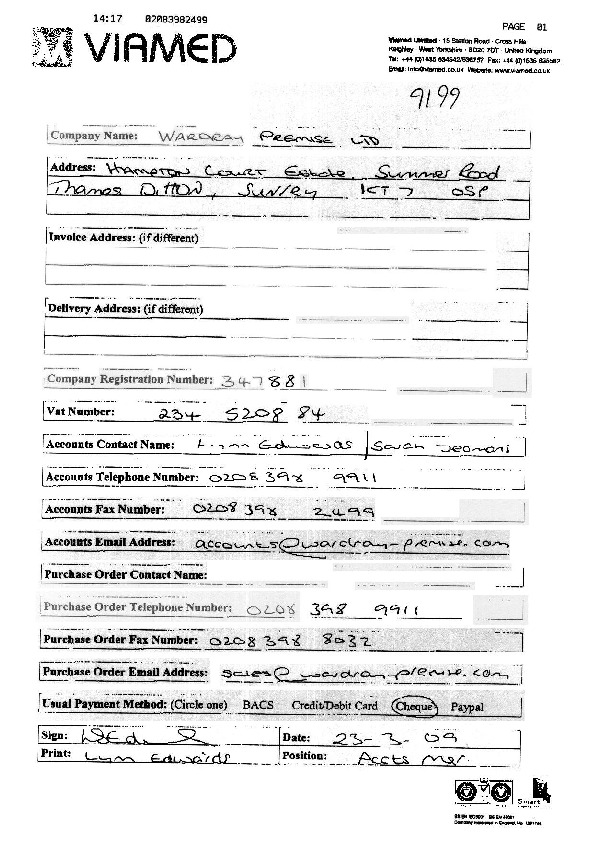 14:17 02083982499 PAGE 01
VIAMED
Viamed Limited · 15 Station Road · Cross Hills
Keighley · West Yorkshire · BD20 7DT · United Kingdom
Tel: +44 (0)1535 634542/636757 Fax: +44 (0)1535 635582
Email: info@viamed.co.uk Website: www.viamed.co.uk
9199
Company Name: WARDRAY PREMISE LTD
Address: HAMPTON COURT Estate, Summer Road
Thames DITTON, Surrey KT7 OSP
Invoice Address: (if different)
Delivery Address: (if different)
Company Registration Number: 347881
Vat Number: 234 5208 84
Accounts Contact Name: Lynn Edwards / Sarah Jeomans
Accounts Telephone Number: 0208 398 9911
Accounts Fax Number: 0208 398 2499
Accounts Email Address: accounts@wardray-premise.com
Purchase Order Contact Name:
Purchase Order Telephone Number: 0208 398 9911
Purchase Order Fax Number: 0208 398 8032
Purchase Order Email Address: sales@wardray-premise.com
Usual Payment Method: (Circle one) BACS Credit/Debit Card Cheque Paypal
Sign: Date: 23-3-09
Print: Lynn Edwards Position: Accts Mgr.